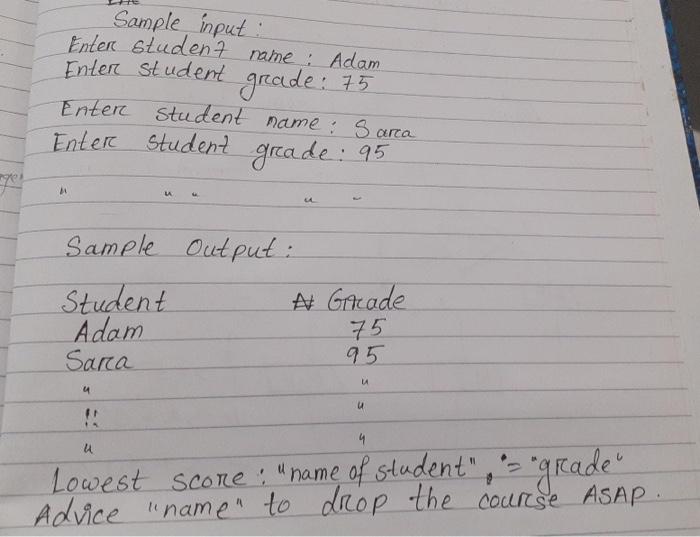 Sample input :
Enter student name : Adam
Enter student grade : 75
Enter student name : Sara
Enter student grade : 95
" " " " -
Sample Output :
Student Grade
Adam 75
Sara 95
" "
!! "
" "
Lowest score : "name of student", "= "grade"
Advice "name" to drop the course ASAP.